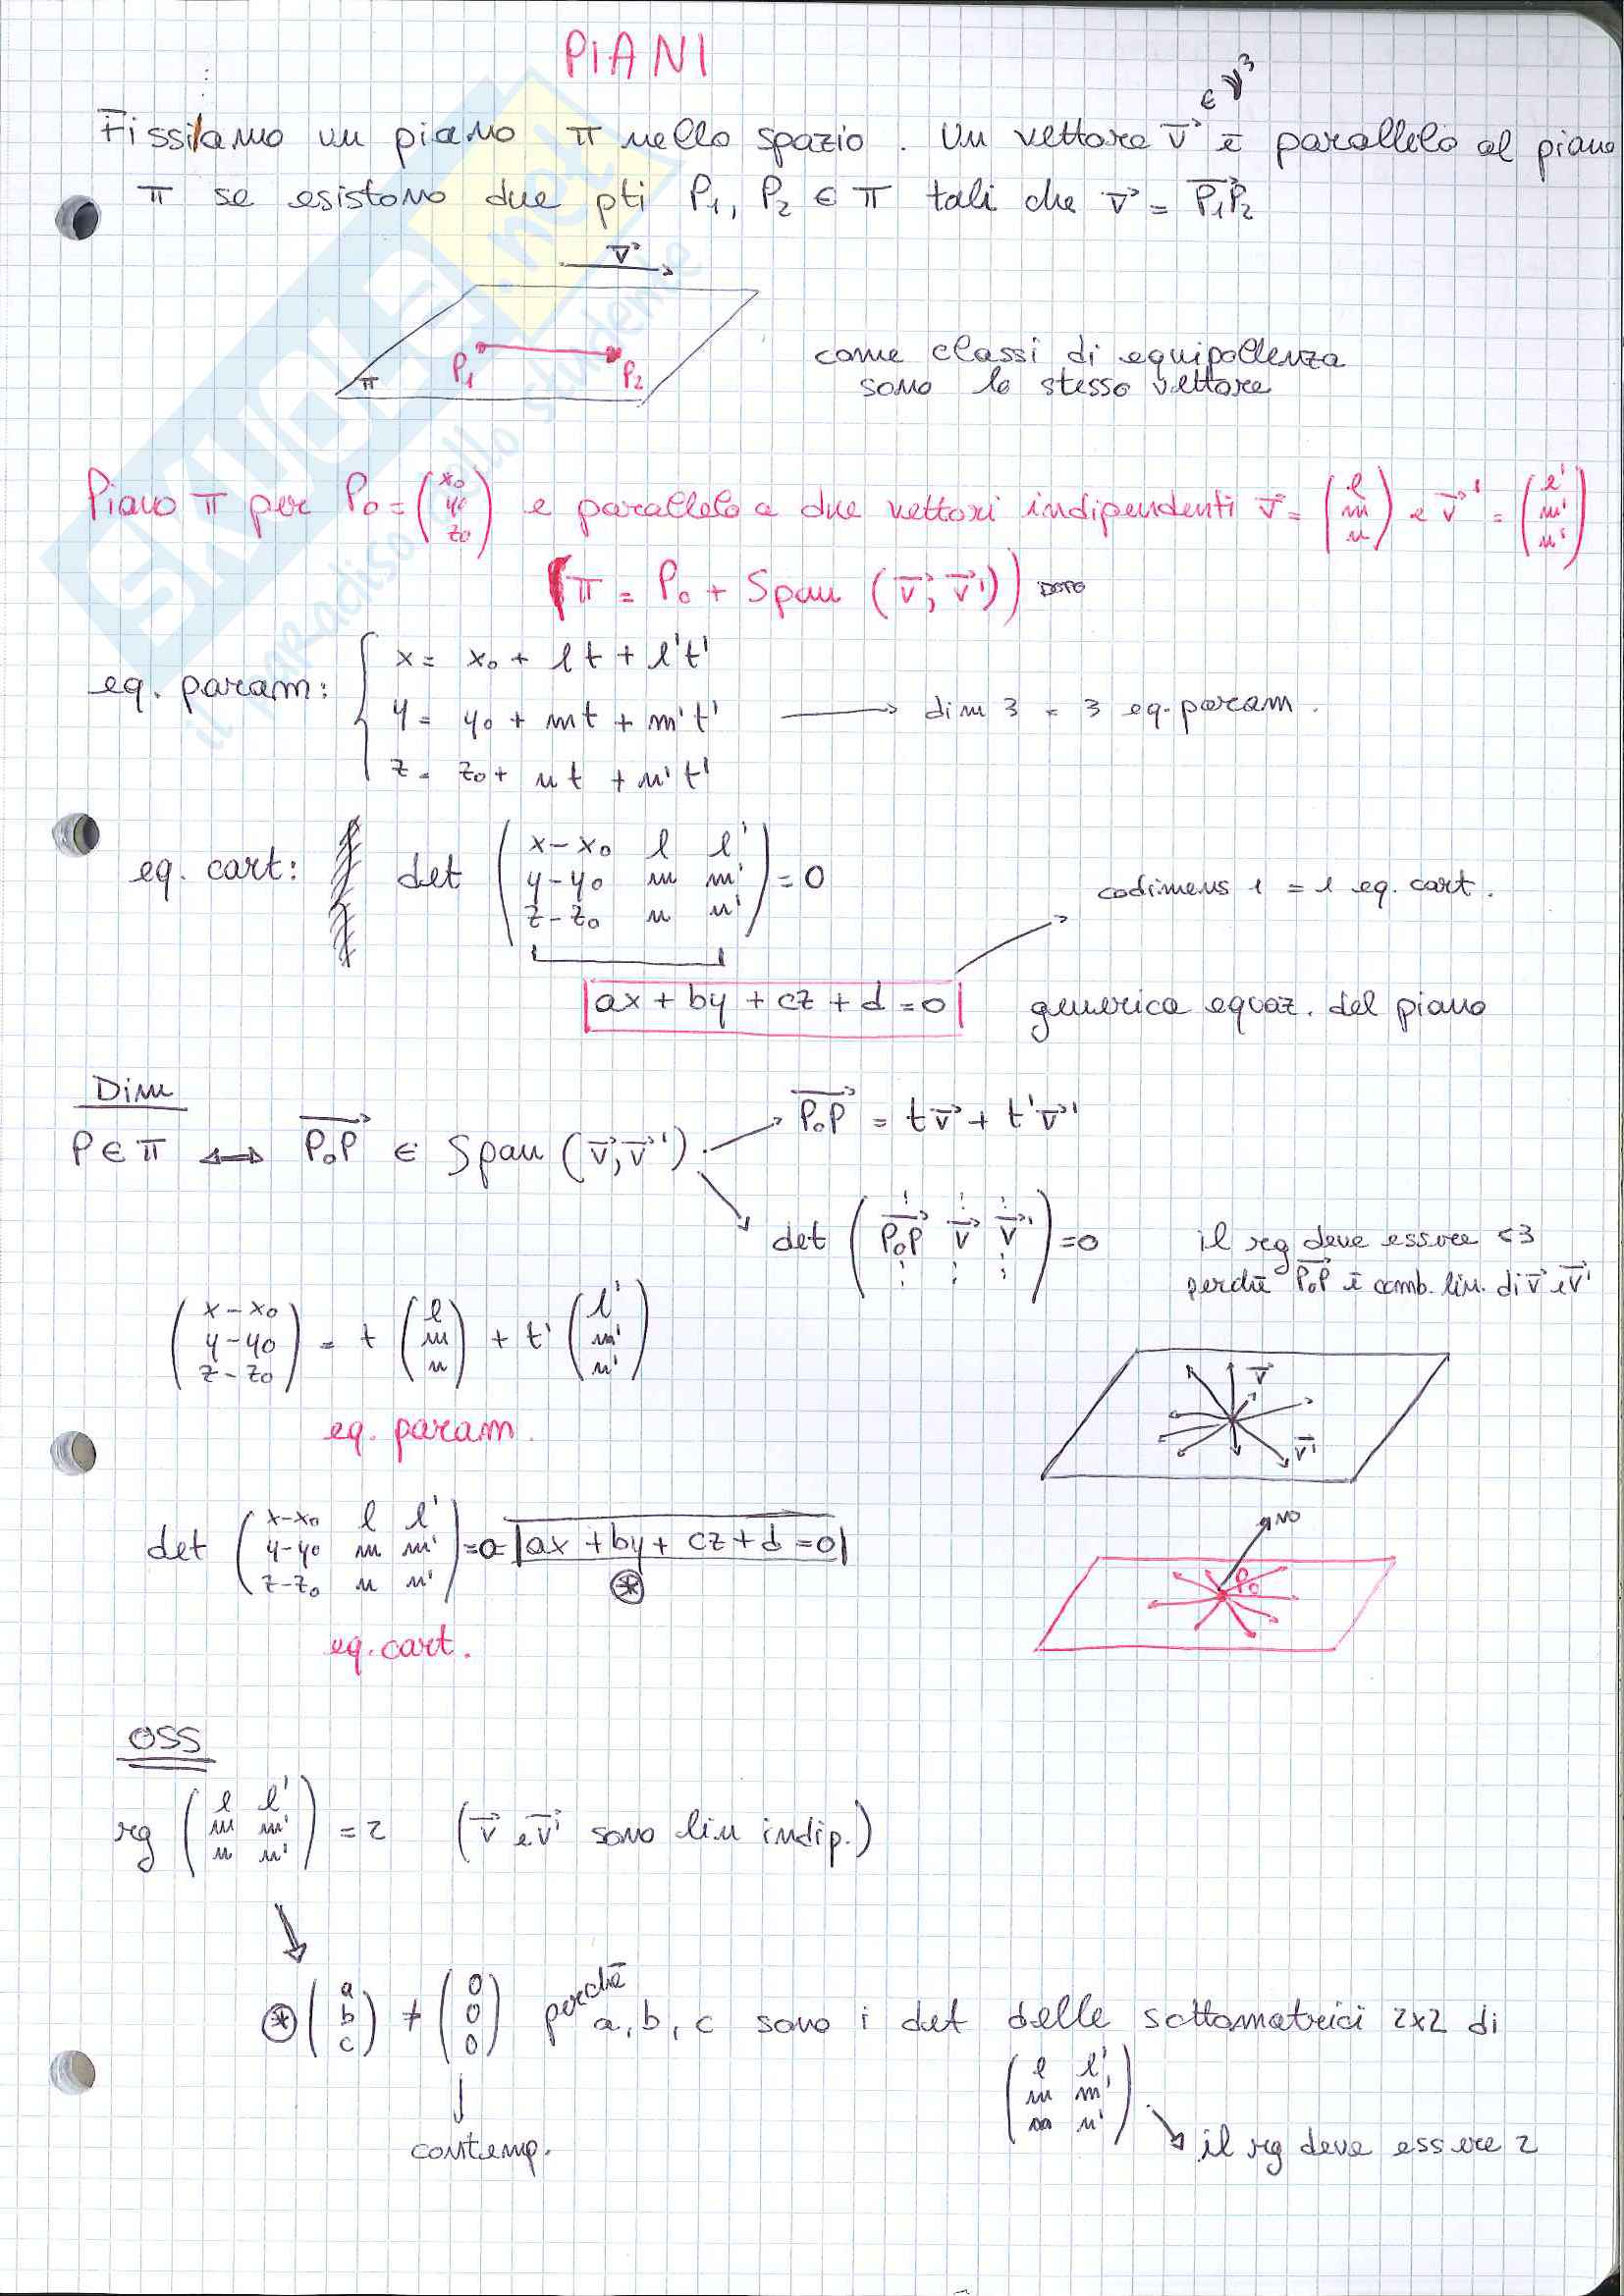 PIANI
∈ V³
Fissiamo un piano π nello spazio. Un vettore v⃗ è parallelo al piano
π se esistono due pti P₁, P₂ ∈ π tali che v⃗ = P₁P₂
v⃗
P₁ P₂
π
come classi di equipollenza
sono lo stesso vettore
Piano π per P₀ = (x₀ y₀ z₀) e parallelo a due vettori indipendenti v⃗ = (l m n) e v⃗' = (l' m' n')
(π = P₀ + Span (v⃗, v⃗'))
eq. param: { x = x₀ + lt + l't'
y = y₀ + mt + m't' → dim 3 = 3 eq. param.
z = z₀ + nt + n't'
eq. cart: det (x-x₀ l l' / y-y₀ m m' / z-z₀ n n') = 0
codimens 1 = 1 eq. cart.
ax + by + cz + d = 0 generica equaz. del piano
Dim
P ∈ π ⟺ P₀P ∈ Span (v⃗, v⃗')
P₀P = tv⃗ + t'v⃗'
det (P₀P v⃗ v⃗') = 0 il rg deve essere <3
perchè P₀P è comb. lin. di v⃗ e v⃗'
(x-x₀ / y-y₀ / z-z₀) = t (l m n) + t' (l' m' n')
eq. param.
v⃗
v⃗'
det (x-x₀ l l' / y-y₀ m m' / z-z₀ n n') = 0 = ax + by + cz + d = 0
⊛
NO
P₀
eq. cart.
OSS
rg (l l' / m m' / n n') = 2 (v⃗ e v⃗' sono lin indip.)
⊛ (a b c) ≠ (0 0 0) perchè a, b, c sono i det delle sottomatrici 2x2 di
(l l' / m m' / n n')
contemp.
il rg deve essere 2
SKUOLA.net
il paradiso dello studente